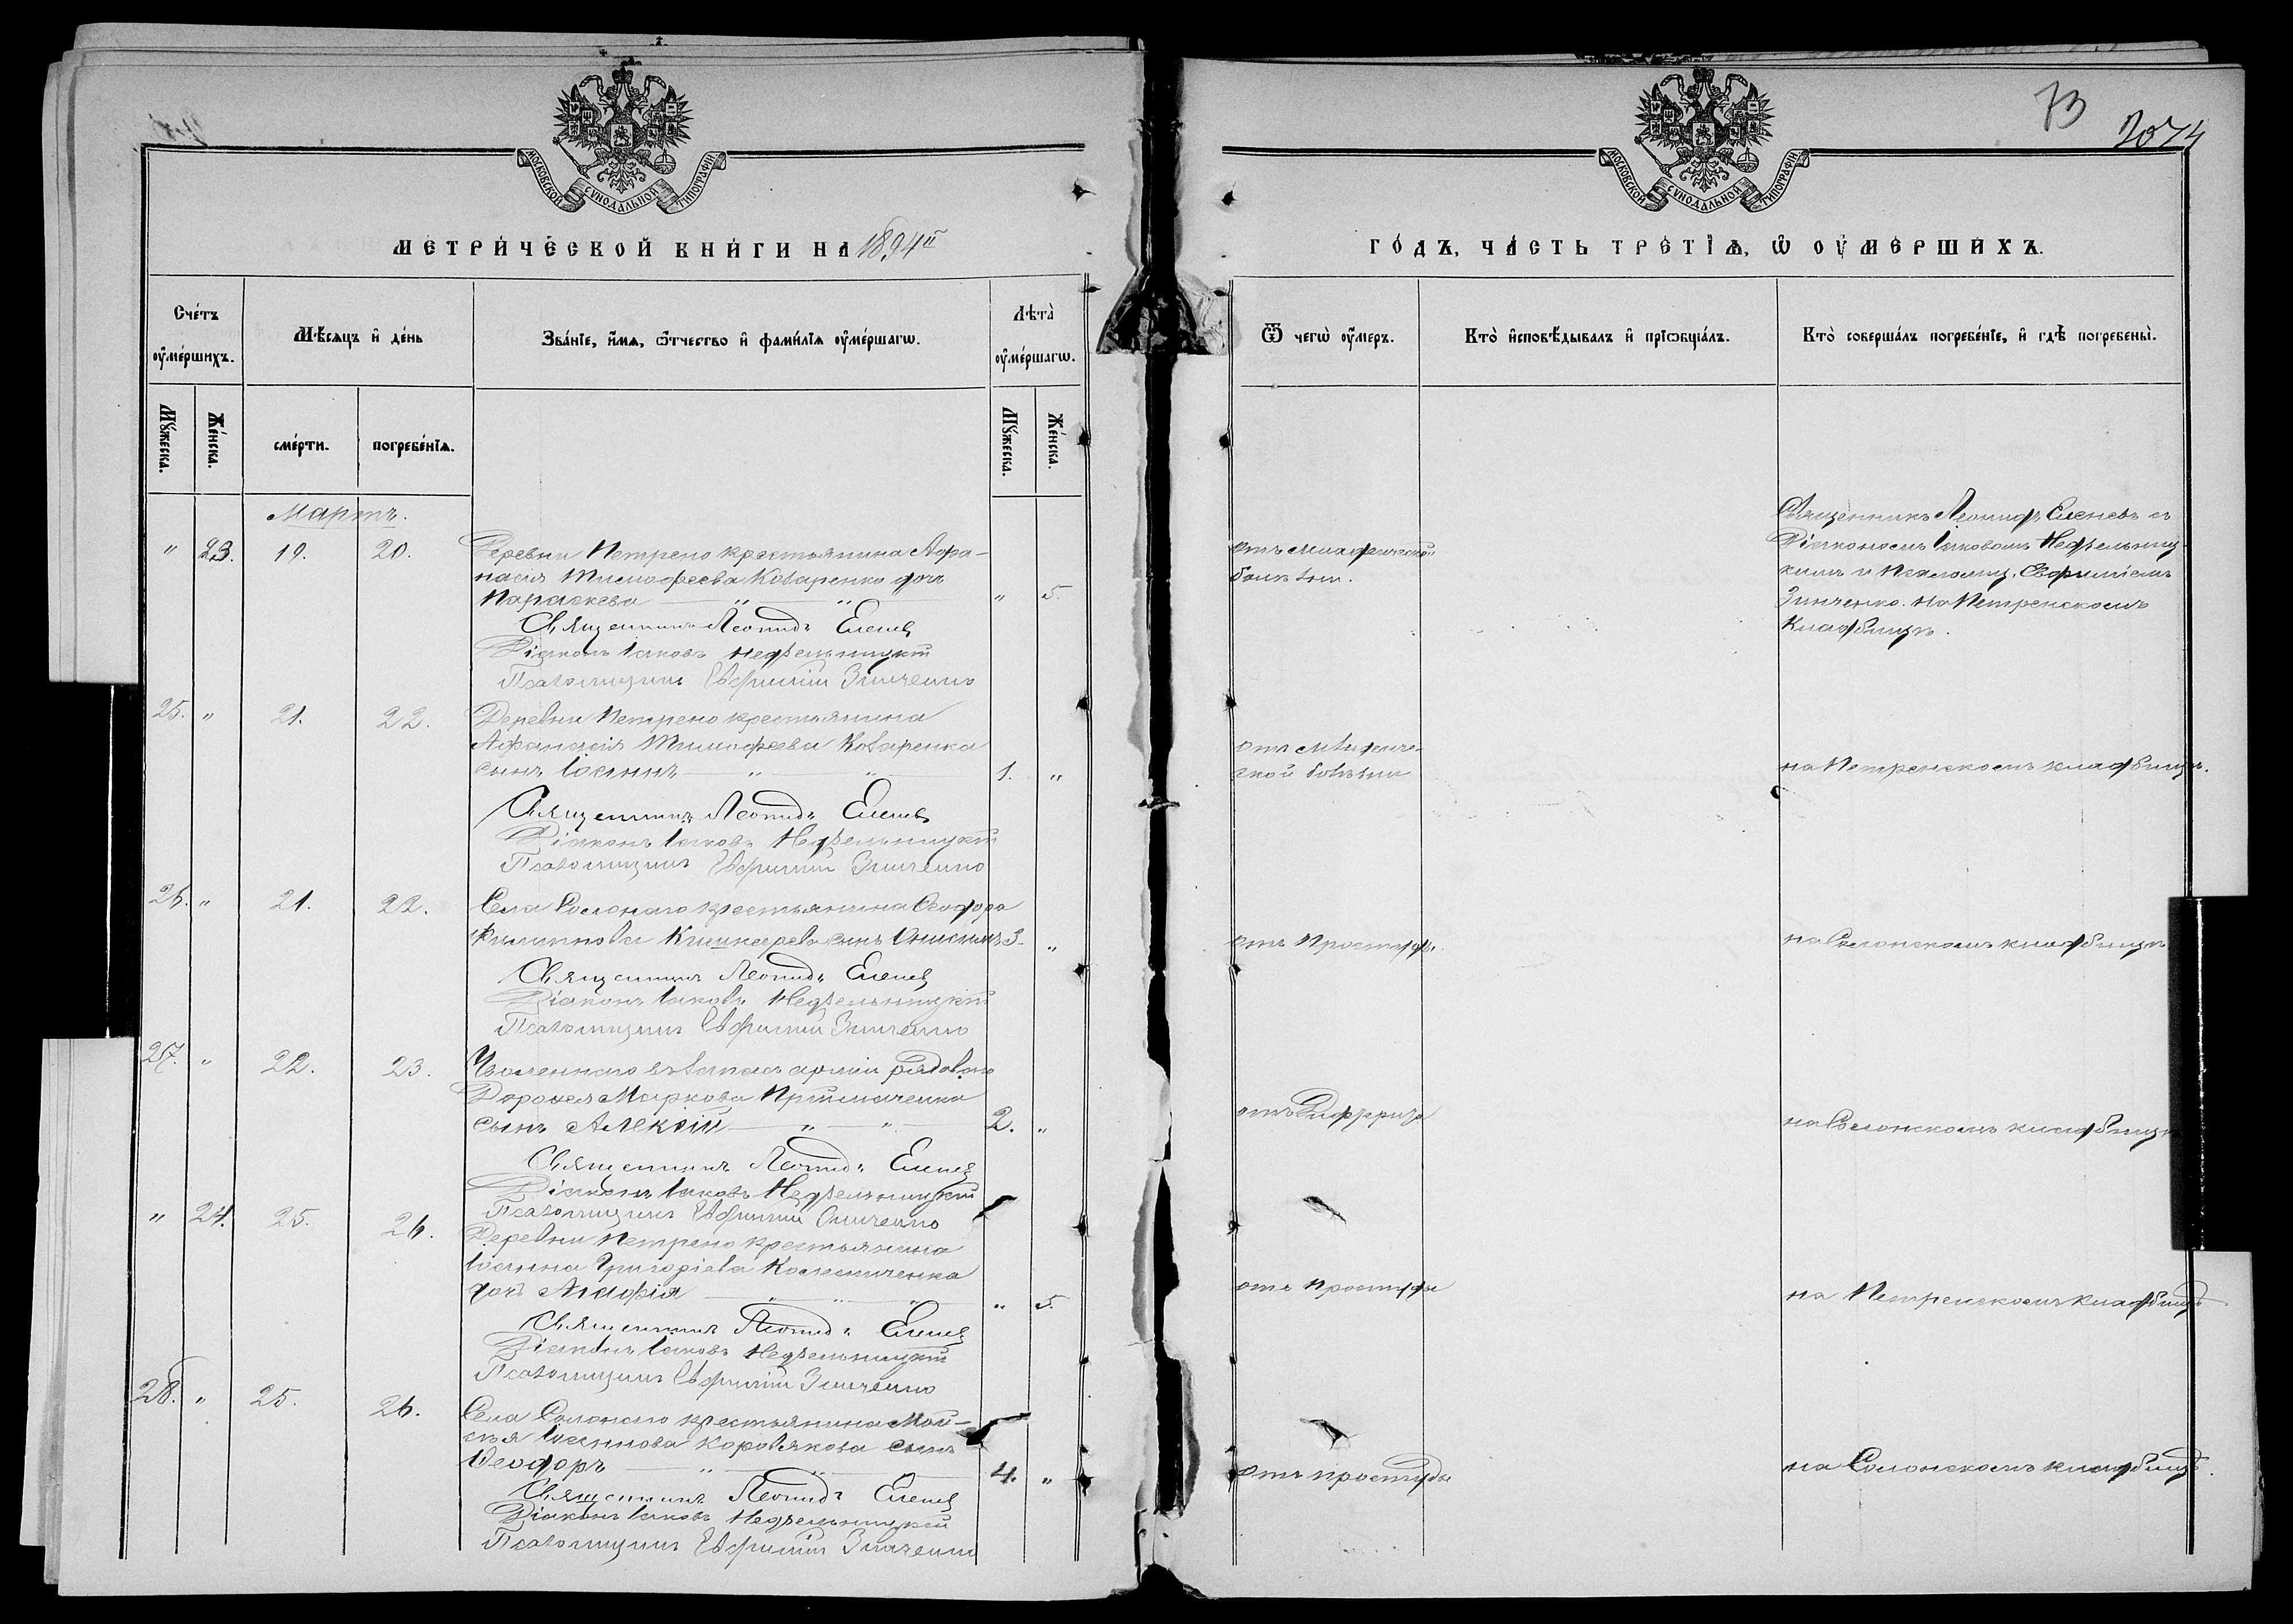 73
2074
МОСКОВСКОЙ СѴНОДАЛЬНОЙ ТИПОГРАФІИ
МОСКОВСКОЙ СѴНОДАЛЬНОЙ ТИПОГРАФІИ
МЕТРИЧЕСКОЙ КНИГИ НА 1894й
ГОДЪ, ЧАСТЬ ТРЕТІѦ, Ѡ ОУМЕРШИХЪ.
Счетъ оумершихъ.
Мѣсяцъ и день
Званіе, имѧ, ѿчество и фамилія оумершагѡ.
Лѣта оумершагѡ.
Ѿ чегѡ оумеръ.
Кто исповѣдывалъ и пріѡбщалъ.
Кто совершалъ погребеніе, и гдѣ погребены.
Мужеска.
Женска.
смерти.
погребеніѧ.
Мужеска.
Женска.
Мартъ.
" 23. 19. 20. Деревни Петрено крестьянина Афа-
насія Тимофеева Коваренко дочь
Параскева " " " 5.
отъ
болѣзни.
Священникъ Леонидъ Еленевъ съ
Діакономъ Іаковомъ Недѣльниц-
кимъ и Псаломщ. Евфиміемъ
Зинченко. На Петренскомъ
Кладбищѣ.
Священникъ Леонидъ Еленевъ
Діаконъ Іаковъ Недѣльницкій
Псаломщикъ Евфимій Зинченко
25. " 21. 22. Деревни Петрено крестьянина
Афанасія Тимофеева Коваренка
сынъ Іоаннъ " " 1. "
ской болѣзни
на Петренскомъ кладбищѣ.
Священникъ Леонидъ Еленевъ
Діаконъ Іаковъ Недѣльницкій
Псаломщикъ Евфимій Зинченко
26. " 21. 22. Села Солонаго крестьянина Ѳеодора
Филиппова сынъ Онисимъ 3. "
отъ простуды.
на Солонскомъ кладбищѣ
Священникъ Леонидъ Еленевъ
Діаконъ Іаковъ Недѣльницкій
Псаломщикъ Евфимій Зинченко
27. " 22. 23. Уволеннаго въ запасъ арміи рядового
Дороѳея Маркова Приймаченка
сынъ Алексій " " 2. "
отъ Дифтерита
на Солонскомъ кладбищѣ
Священникъ Леонидъ Еленевъ
Діаконъ Іаковъ Недѣльницкій
Псаломщикъ Евфимій Зинченко
" 24. 25. 26. Деревни Петрено крестьянина
Іоанна Григоріева
дочь " " " " 5.
отъ простуды
на Петренскомъ кладбищѣ
Священникъ Леонидъ Еленевъ
Діаконъ Іаковъ Недѣльницкій
Псаломщикъ Евфимій Зинченко
28. " 25. 26. Села Солонаго крестьянина Мои-
сея Іоаннова Коровякова сынъ
Ѳеодоръ " " 4. "
отъ простуды
на Солонскомъ кладбищѣ.
Священникъ Леонидъ Еленевъ
Діаконъ Іаковъ Недѣльницкій
Псаломщикъ Евфимій Зинченко